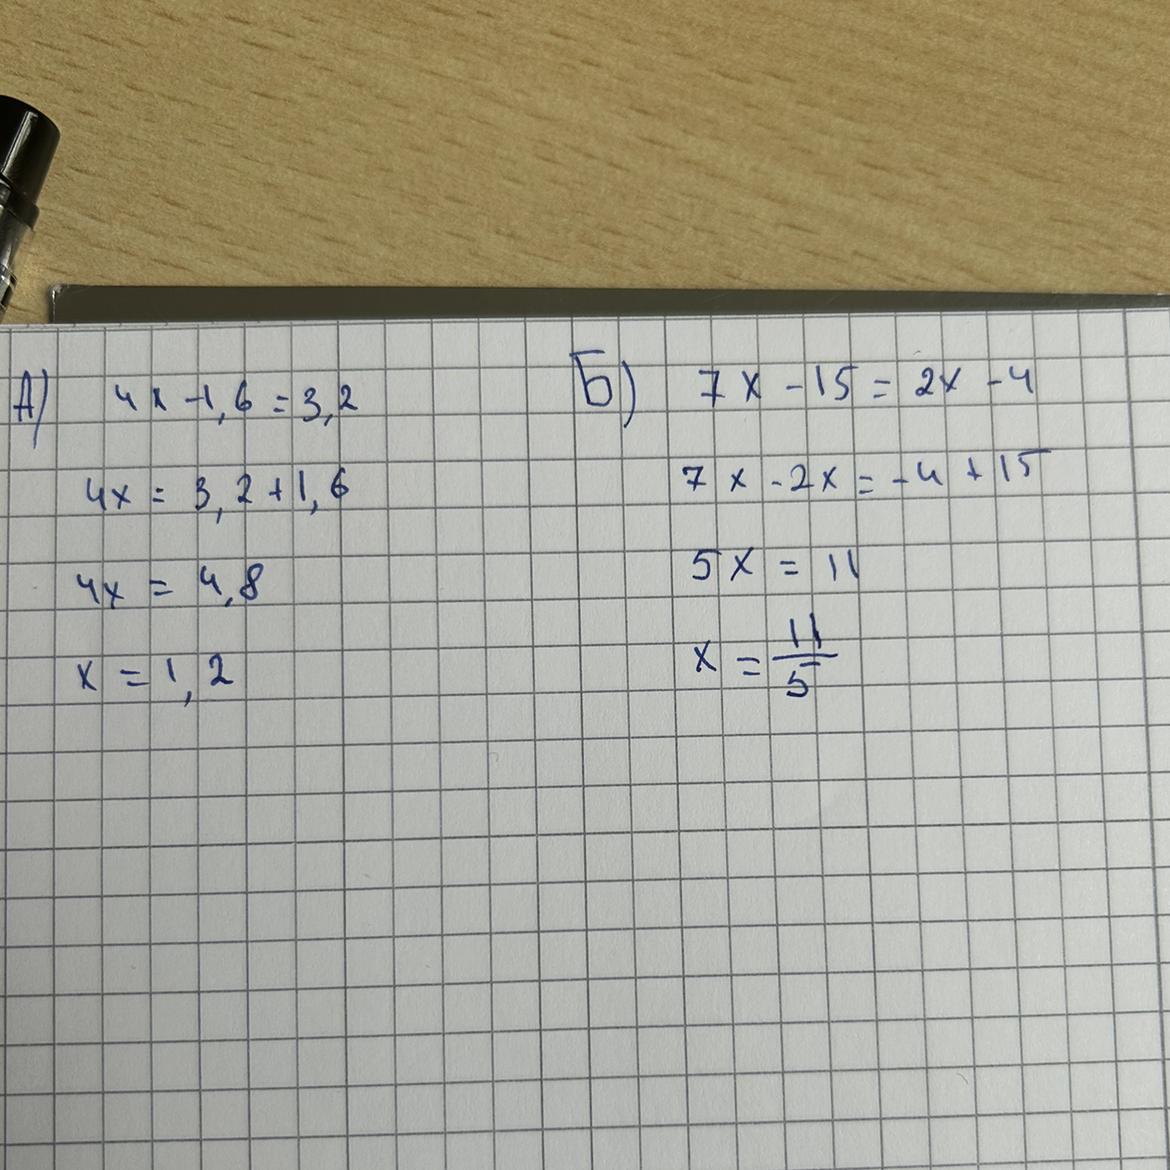 А) 4x - 1,6 = 3,2
4x = 3,2 + 1,6
4x = 4,8
x = 1,2
Б) 7x - 15 = 2x - 4
7x - 2x = -4 + 15
5x = 11
x = 11/5